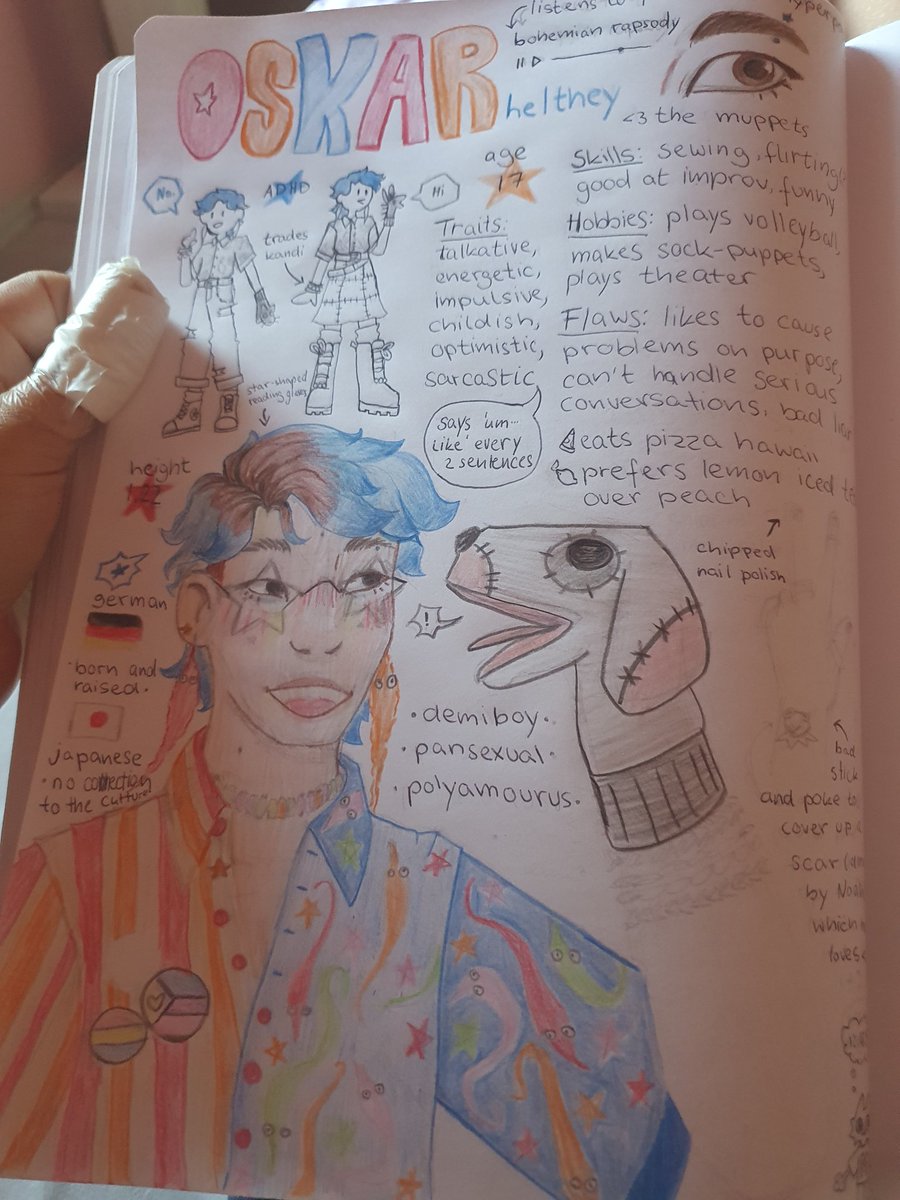 OSKAR
heltney
listens to
bohemian rapsody
<3 the muppets
No.
ADHD
Hi
trades
kandi
age
17
Traits:
talkative,
energetic,
impulsive,
childish,
optimistic,
sarcastic
Skills: sewing, flirting,
good at improv, funny
Hobbies: plays volleyball,
makes sock-puppets,
plays theater
Flaws: likes to cause
problems on purpose,
can't handle serious
conversations, bad liar
eats pizza hawaii
prefers lemon iced
over peach
says 'um...
like' every
2 sentences
star-shaped
reading glasses
height
german
born and
raised.
japanese
no
to the culture
!
chipped
nail polish
• demiboy •
• pansexual •
• polyamourus •
bad
stick
and poke to
cover up a
scar
by
which
loves